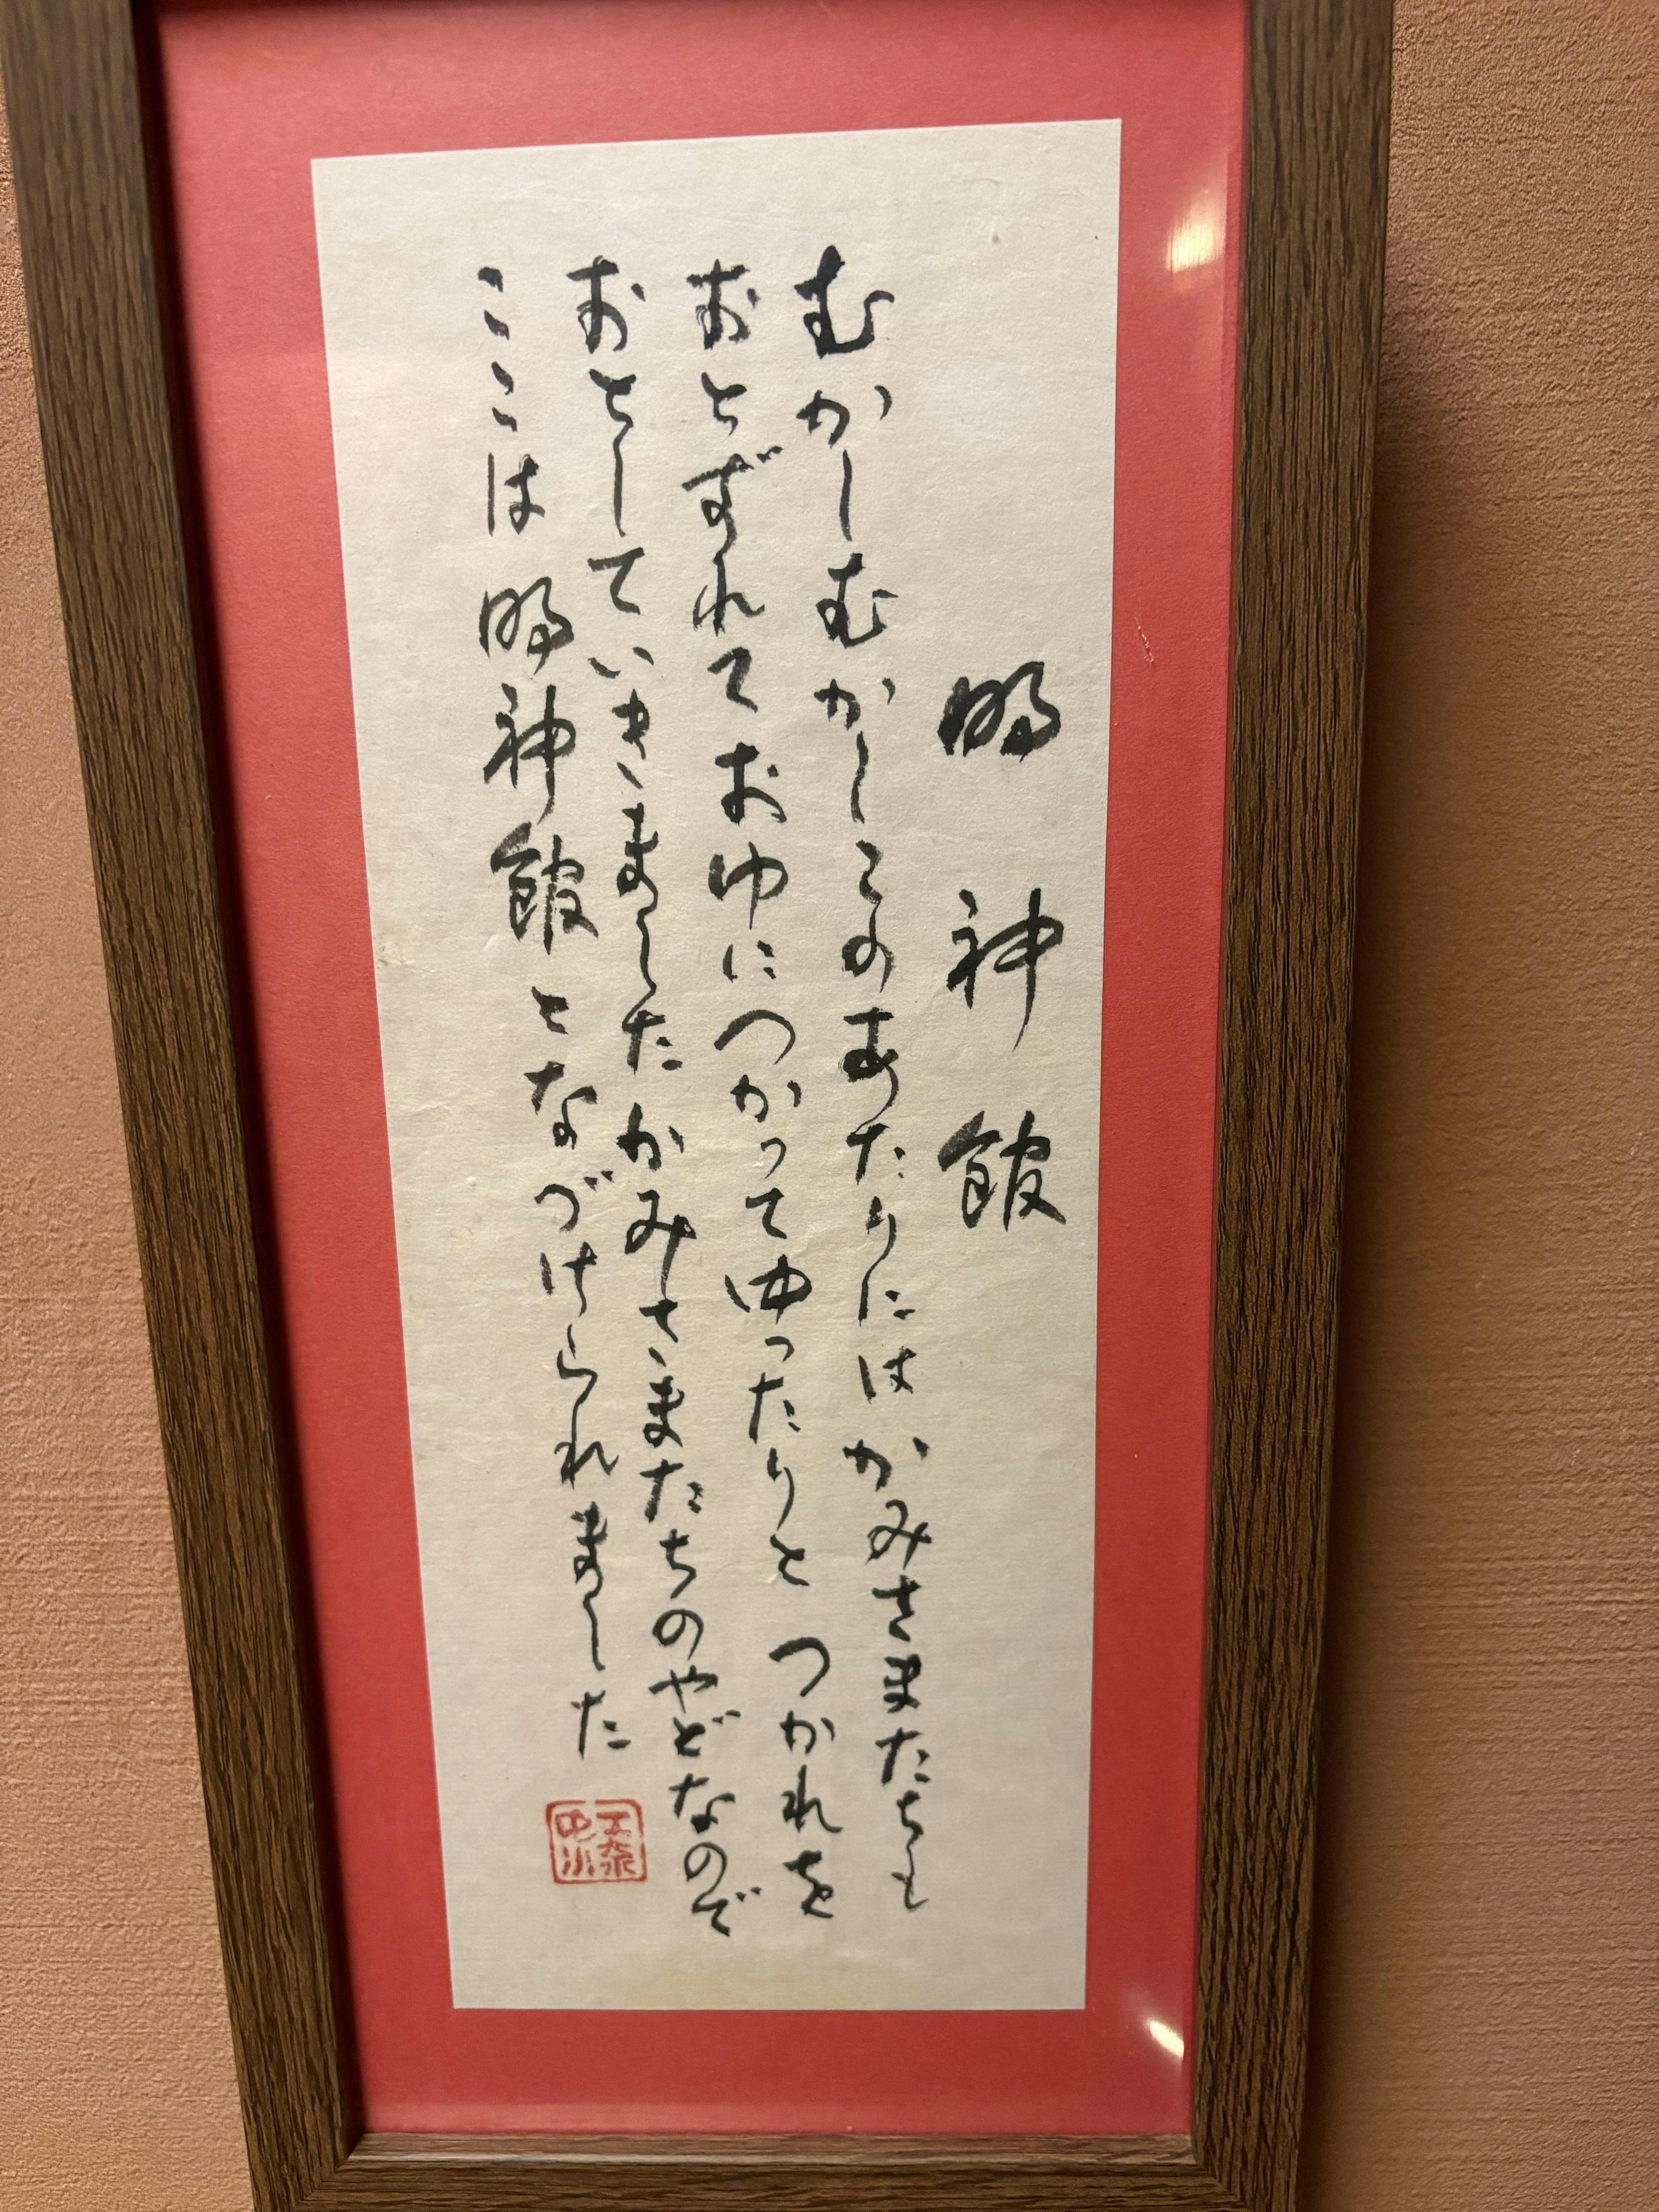 明神館
むかしむかしこのあたりにはかみさまたちも
おとずれておゆにつかってゆったりと つかれを
おとしていきましたかみさまたちのやどなので
ここは明神館となづけられました